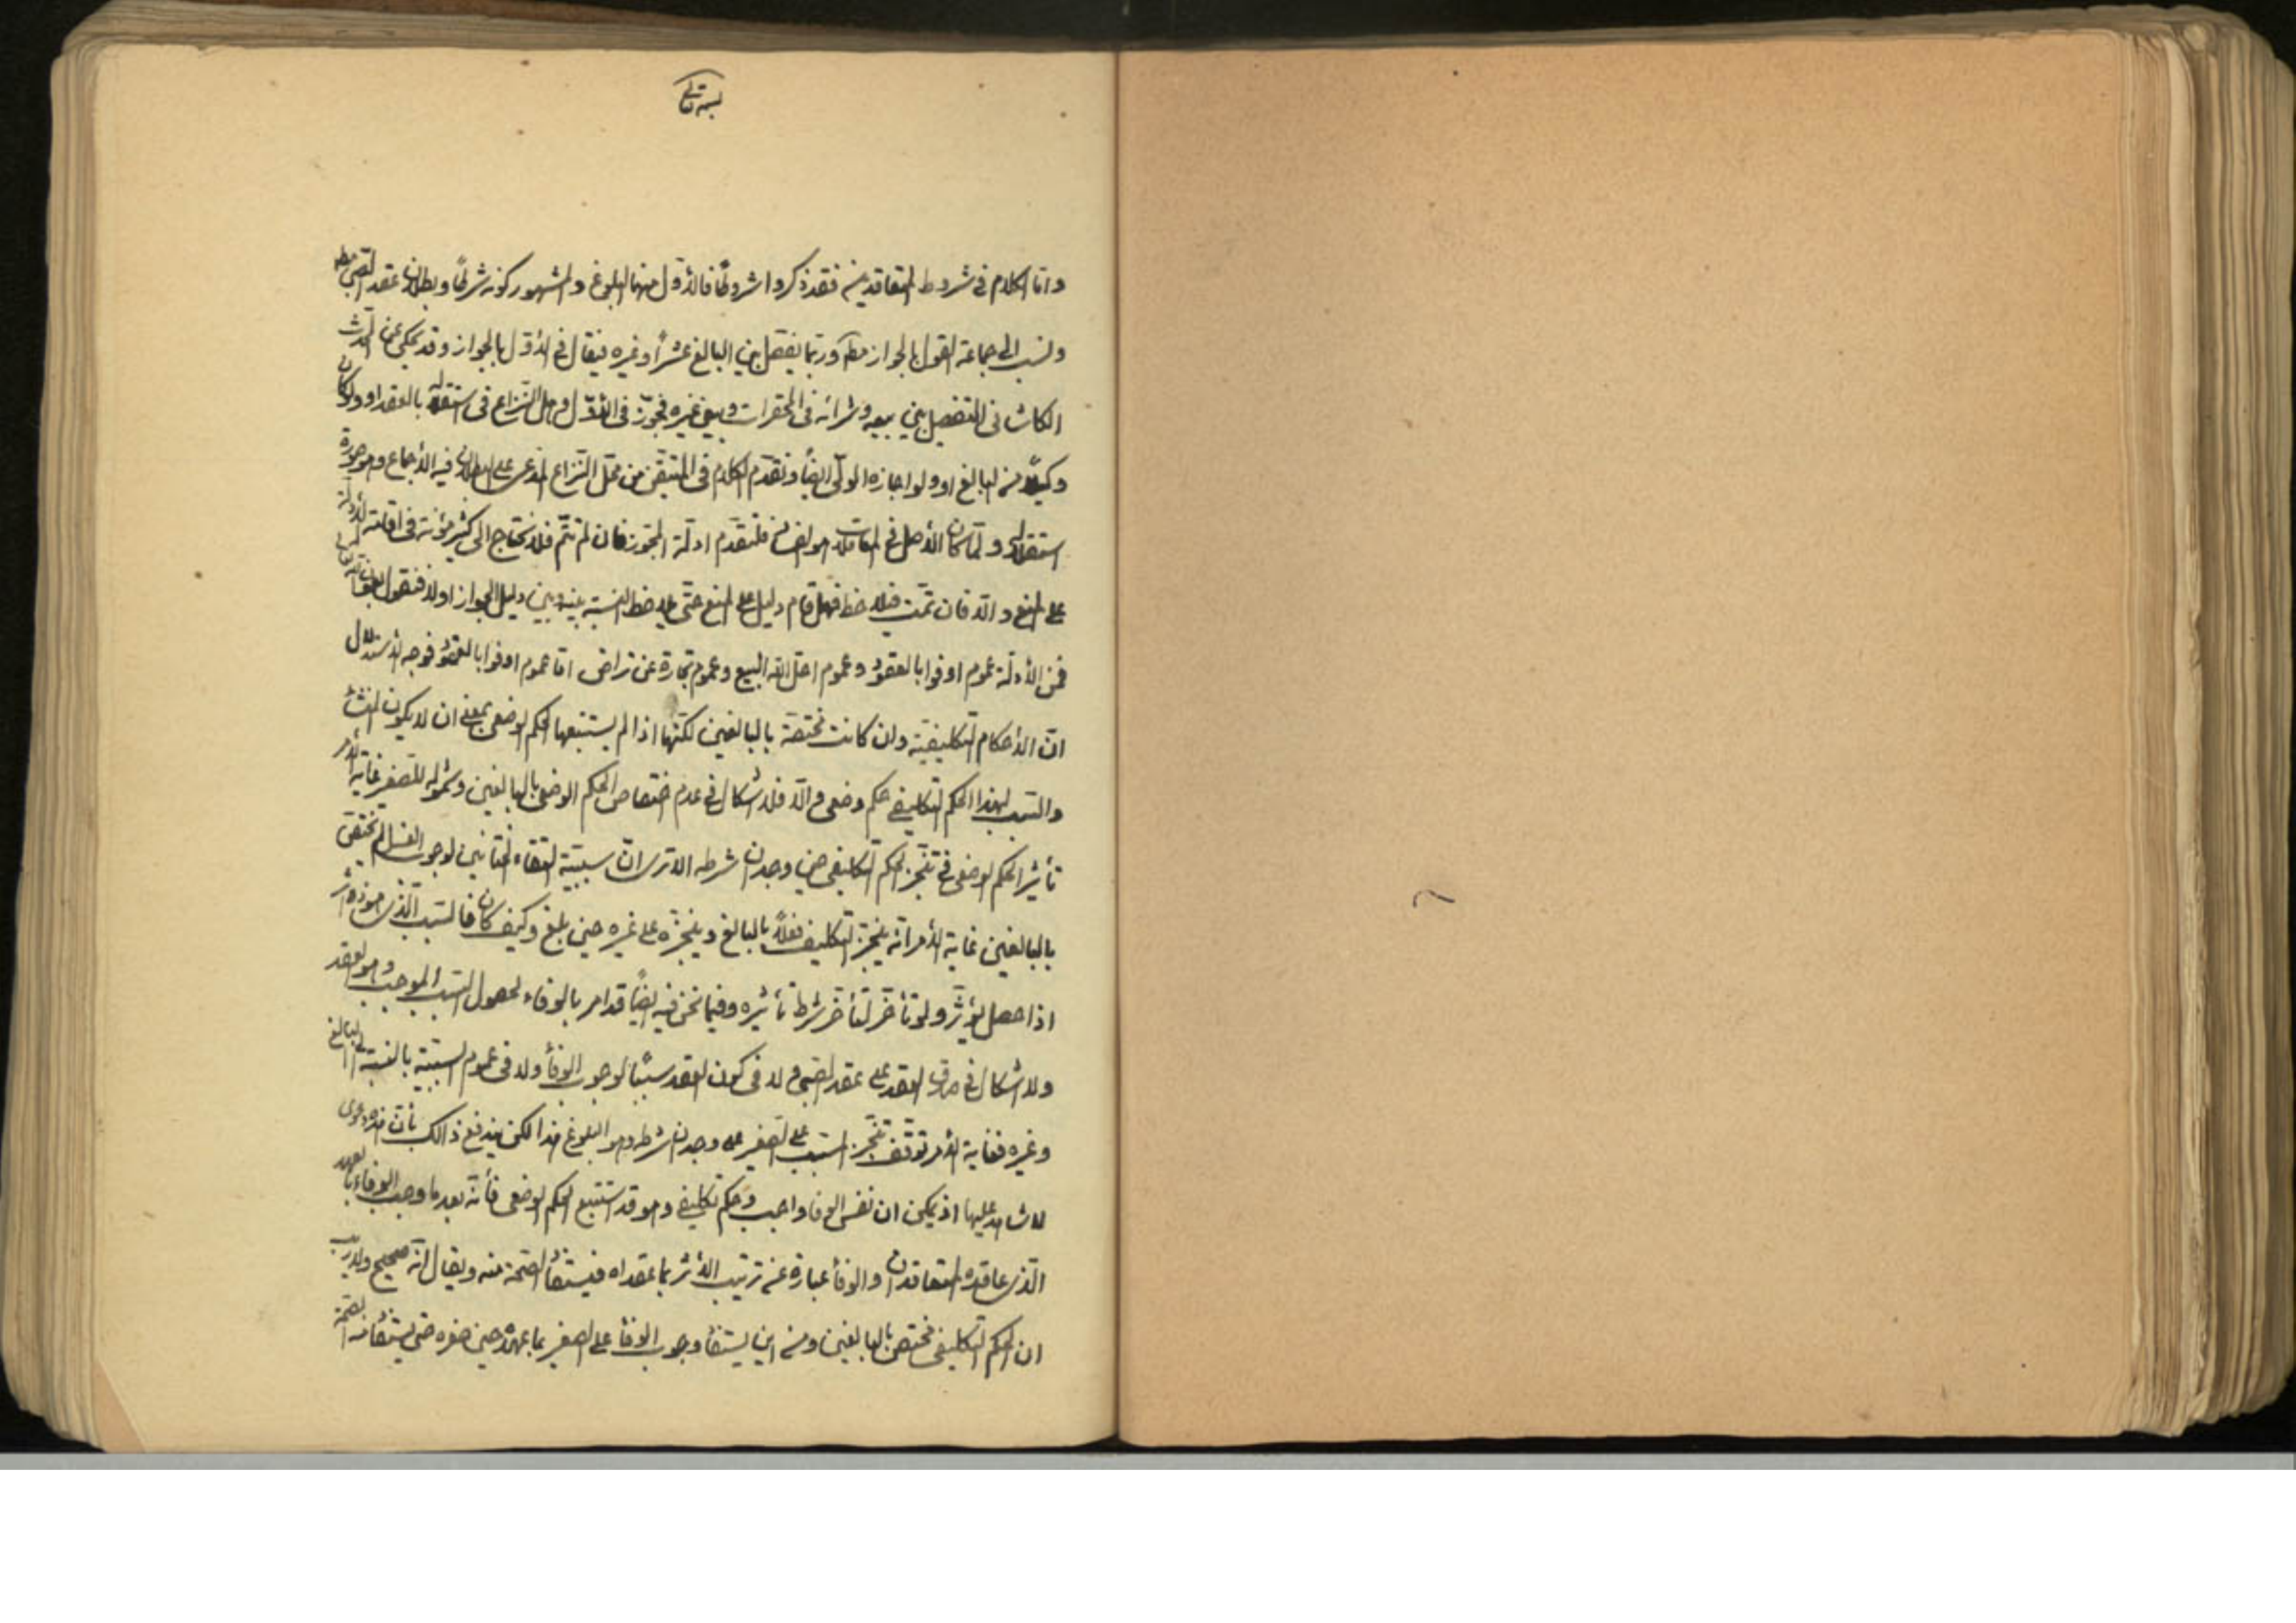 بسمه تعالى
واما الكلام فى شروط المتعاقدين فقد ذكروا شروطًا فالأوّل منها البلوغ والمشهور كونه شرطًا وبطلان عقد الصّبى مطه
ونسب الى جماعة القول بالجواز مطه وربّما يفصل بين البالغ عشرًا وغيره فيقال فى الأوّل بالجواز وقد يحكى عن المحدث
الكاشانى التفصيل بين بيعه وشرائه فى المحقرات وبين غيره فجوّز فى الأوّل وهل النّزاع فى استقلاله بالعقد او ولو كان
وكيلًا من البالغ او ولو اجازه الولىّ ايضًا وتقدّم الكلام فى المتيقن من محلّ النّزاع المدعى على البطلان فيه الأجماع وهو صورة
استقلاله ولمّا كان الأصل فى المعاملات هو الفساد فلنقدّم ادلّة المجوز فان لم تتمّ فلا نحتاج الى كثير مؤنة فى اقامة الأدلّة
على المنع والّا فان تمّت فيلاحظ فهل قام دليل على المنع حتى يلاحظ النسبة بينه وبين دليل الجواز اولا فنقول
فمن الأدلّة عموم اوفوا بالعقود وعموم احلّ الله البيع وعموم تجارة عن تراض امّا عموم اوفوا بالعقود فوجه الأستدلال
انّ الأحكام التكليفيّة وان كانت مختصّة بالبالغين لكنّها اذا لم يستتبعها الحكم الوضعى بمعنى ان لا يكون المنشأ
والسّبب لهذا الحكم التكليفى حكم وضعى والّا فلا اشكال فى عدم اختصاص الحكم الوضعى بالبالغين وشموله للصّغير غاية الأمر
تأثير الحكم الوضعى فى تنجّز الحكم التّكليفى حين وجدان شرطه الا ترى انّ سببيّة التقاء الختانين لوجوب الغسل لم تختصّ
بالبالغين غاية الأمر انّه ينجّز التكليف فعلًا بالبالغ وينجّزه على غيره حين بلغ وكيف كان فالسّبب الّذى هو مؤثر
اذا حصل يؤثّر ولو تأخّر لتأخّر شرط تأثيره وفيما نحن فيه ايضًا قد امر بالوفاء لحصول السّبب الموجب وهو العقد
ولا اشكال فى صدق العقد على عقد الصّبى ولا فى كون العقد سببًا لوجوب الوفاء ولا فى عموم السببيّة بالنسبة الى البالغ
وغيره فغاية الأمر توقّف تنجّز السبب على الصّغير على وجدان شرطه وهو البلوغ هذا لكن يندفع ذالك بأنّ هذه دعوى
لا شاهد عليها اذ يمكن ان نفس الوفا واجب وحكم تكليفى وهو قد استتبع الحكم الوضعى فأنّه بعد ما وجب الوفاء بالعهد
الّذى عاقده المتعاقدان والوفاء عبارة عن ترتيب الأثر بما عقداه فيستفاد الصّحة منه ويقال انّه صحيح ولا ريب
ان الحكم التكليفى مختصّ بالبالغين ومن اين يستفاد وجوب الوفاء على الصغير بما عهده حين صغره حتى يستفاد منه الصّحة